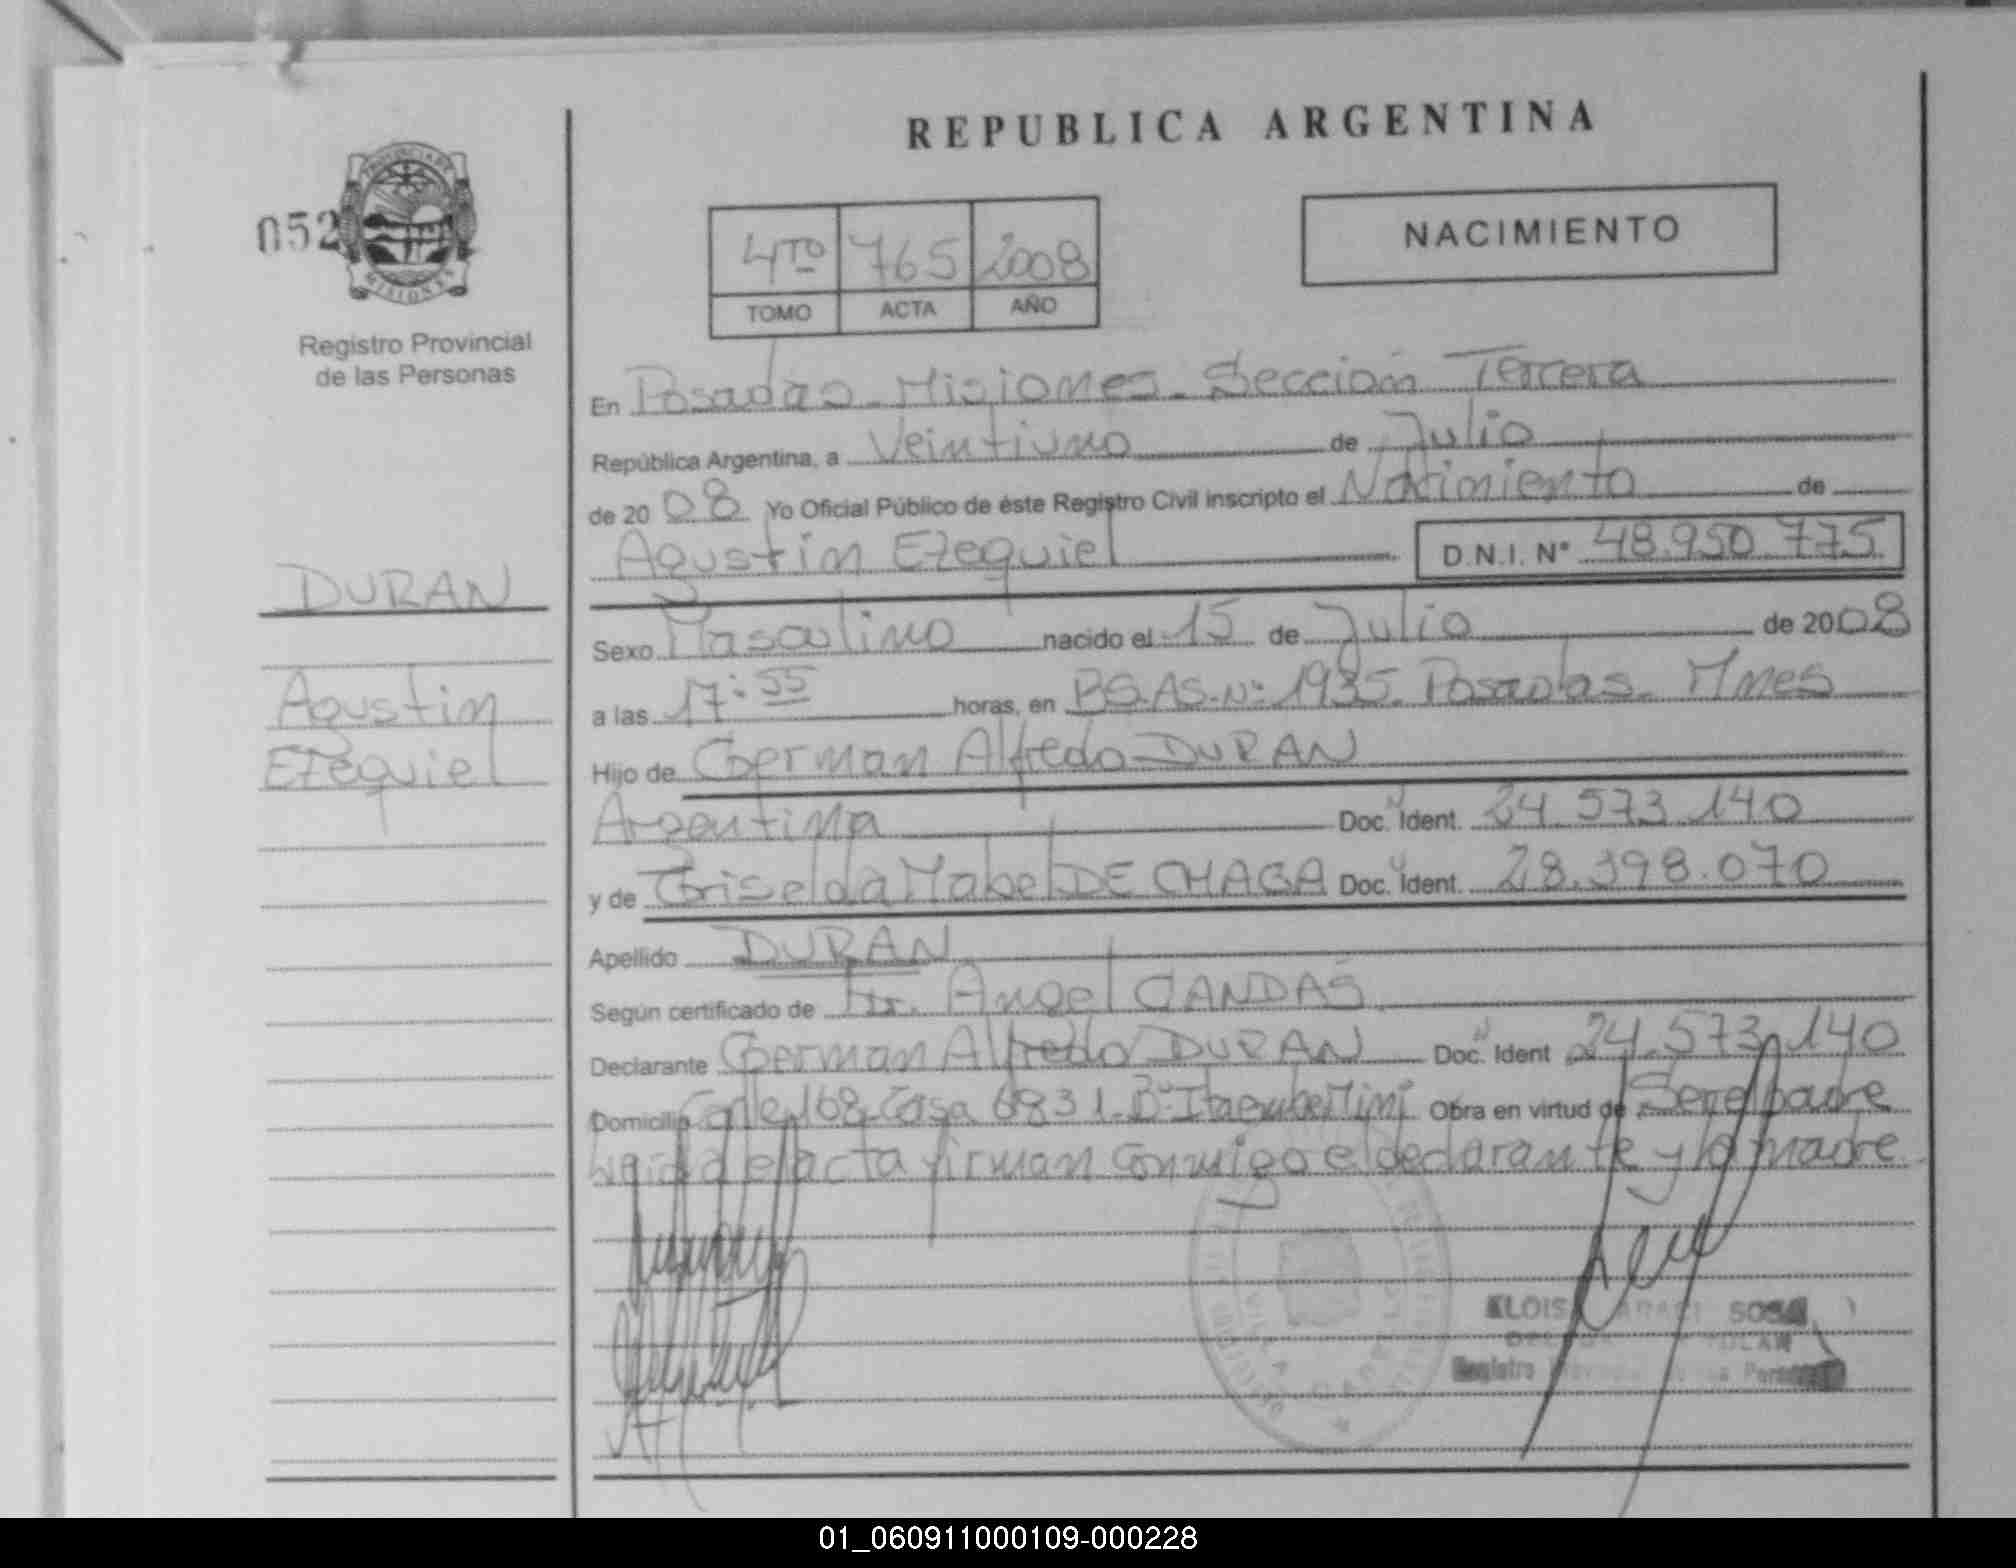 REPUBLICA ARGENTINA
052
PROVINCIA DE
MISIONES
Registro Provincial
de las Personas
4TO 765 2008
TOMO ACTA AÑO
NACIMIENTO
En Posadas - Misiones - Sección Tercera
República Argentina, a Veintiuno de Julio
de 2008 Yo Oficial Público de éste Registro Civil inscripto el Nacimiento de
Agustin Ezequiel D.N.I. N° 48.950.775
DURAN
Sexo Masculino nacido el 15 de Julio de 2008
Agustin
a las 17:55 horas, en BS.AS. N° 1935. Posadas - Mnes
Ezequiel
Hijo de German Alfredo DURAN
Argentina Doc. Ident. 24.573.140
y de Griselda Mabel DE CHAGA Doc. Ident. 28.398.070
Apellido DURAN
Según certificado de Dr. Angel CANDAS
Declarante German Alfredo DURAN Doc. Ident 24.573.140
Domicilio Calle 168 Casa 6831. B° Itaembe Mini Obra en virtud de Ser el padre
Leida el acta firman conmigo el declarante y la madre
SOSA
Registro
01_060911000109-000228